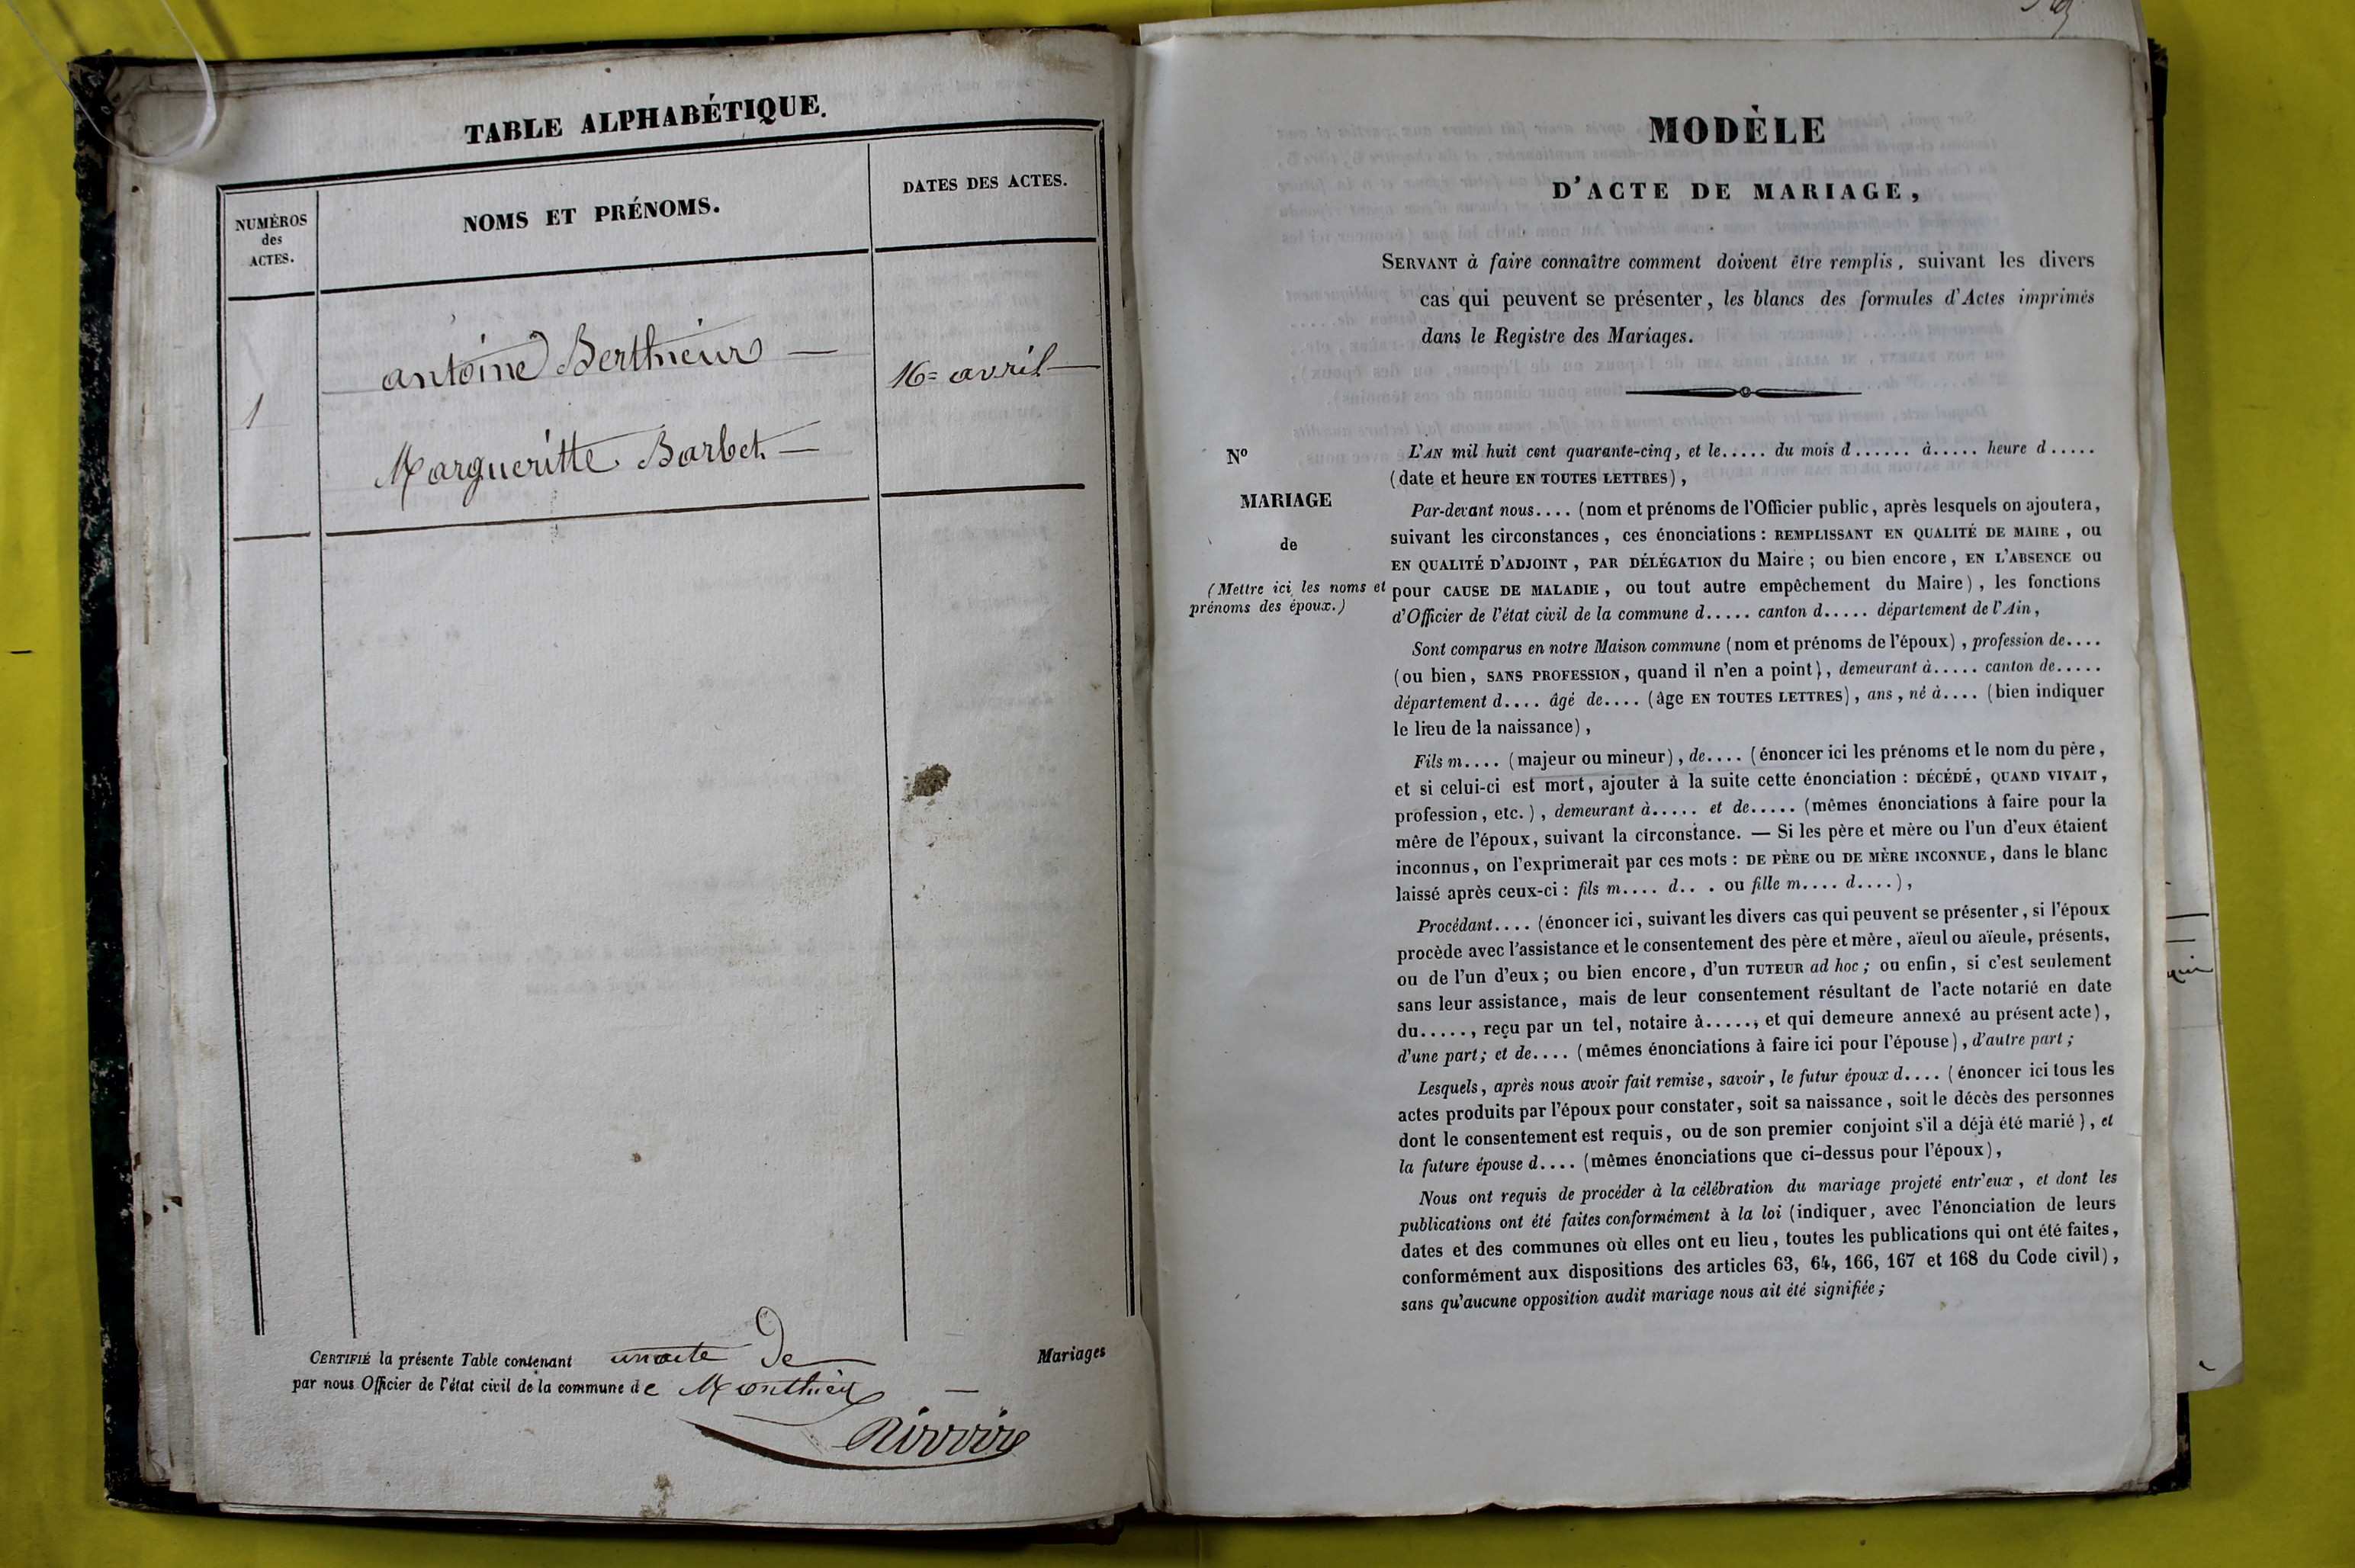 TABLE ALPHABÉTIQUE.
NUMÉROS
des
ACTES.
NOMS ET PRÉNOMS.
DATES DES ACTES.
1
antoine Berthieur —
16= avril —
Margueritte Barbet —
CERTIFIÉ la présente Table contenant un acte De — Mariages
par nous Officier de l'état civil de la commune de Monthieux —
MODÈLE
D'ACTE DE MARIAGE,
SERVANT à faire connaître comment doivent être remplis, suivant les divers
cas qui peuvent se présenter, les blancs des formules d'Actes imprimés
dans le Registre des Mariages.
No
MARIAGE
de
(Mettre ici les noms et
prénoms des époux.)
L'AN mil huit cent quarante-cinq, et le..... du mois d...... à..... heure d.....
(date et heure EN TOUTES LETTRES),
Par-devant nous.... (nom et prénoms de l'Officier public, après lesquels on ajoutera,
suivant les circonstances, ces énonciations : REMPLISSANT EN QUALITÉ DE MAIRE, OU
EN QUALITÉ D'ADJOINT, PAR DÉLÉGATION du Maire; ou bien encore, EN L'ABSENCE OU
pour CAUSE DE MALADIE, ou tout autre empêchement du Maire), les fonctions
d'Officier de l'état civil de la commune d..... canton d..... département de l'Ain,
Sont comparus en notre Maison commune (nom et prénoms de l'époux), profession de....
(ou bien, SANS PROFESSION, quand il n'en a point), demeurant à..... canton de.....
département d.... âgé de.... (âge EN TOUTES LETTRES), ans, né à.... (bien indiquer
le lieu de la naissance),
Fils m.... (majeur ou mineur), de.... (énoncer ici les prénoms et le nom du père,
et si celui-ci est mort, ajouter à la suite cette énonciation : DÉCÉDÉ, QUAND VIVAIT,
profession, etc.), demeurant à..... et de..... (mêmes énonciations à faire pour la
mère de l'époux, suivant la circonstance. — Si les père et mère ou l'un d'eux étaient
inconnus, on l'exprimerait par ces mots : DE PÈRE OU DE MÈRE INCONNUE, dans le blanc
laissé après ceux-ci : fils m.... d.. . ou fille m.... d....),
Procédant.... (énoncer ici, suivant les divers cas qui peuvent se présenter, si l'époux
procède avec l'assistance et le consentement des père et mère, aïeul ou aïeule, présents,
ou de l'un d'eux; ou bien encore, d'un TUTEUR ad hoc; ou enfin, si c'est seulement
sans leur assistance, mais de leur consentement résultant de l'acte notarié en date
du....., reçu par un tel, notaire à....., et qui demeure annexé au présent acte),
d'une part; et de.... (mêmes énonciations à faire ici pour l'épouse), d'autre part;
Lesquels, après nous avoir fait remise, savoir, le futur époux d.... (énoncer ici tous les
actes produits par l'époux pour constater, soit sa naissance, soit le décès des personnes
dont le consentement est requis, ou de son premier conjoint s'il a déjà été marié), et
la future épouse d.... (mêmes énonciations que ci-dessus pour l'époux),
Nous ont requis de procéder à la célébration du mariage projeté entr'eux, et dont les
publications ont été faites conformément à la loi (indiquer, avec l'énonciation de leurs
dates et des communes où elles ont eu lieu, toutes les publications qui ont été faites,
conformément aux dispositions des articles 63, 64, 166, 167 et 168 du Code civil),
sans qu'aucune opposition audit mariage nous ait été signifiée;